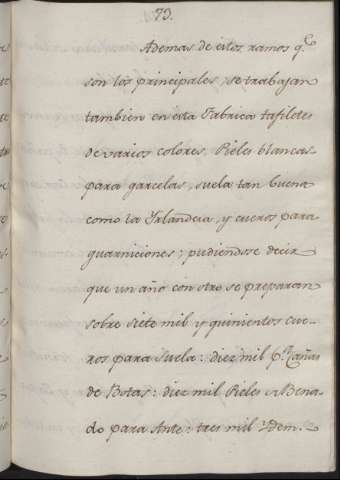 73.
Ademas de estos ramos q.e
son los principales, se trabajan
tambien en esta Fabrica tafiletes
de varios colores, Pieles blancas
para garcetas, suela tan buena
como la Yrlandeia, y cueros para
guarniciones; pudiendose decir
que un año con otro se preparan
sobre siete mil y quinientos cue-
ros para Suela: diez mil p.a Cañas
de Botas: diez mil Pieles de Bena-
do para Ante: tres mil Ydem.